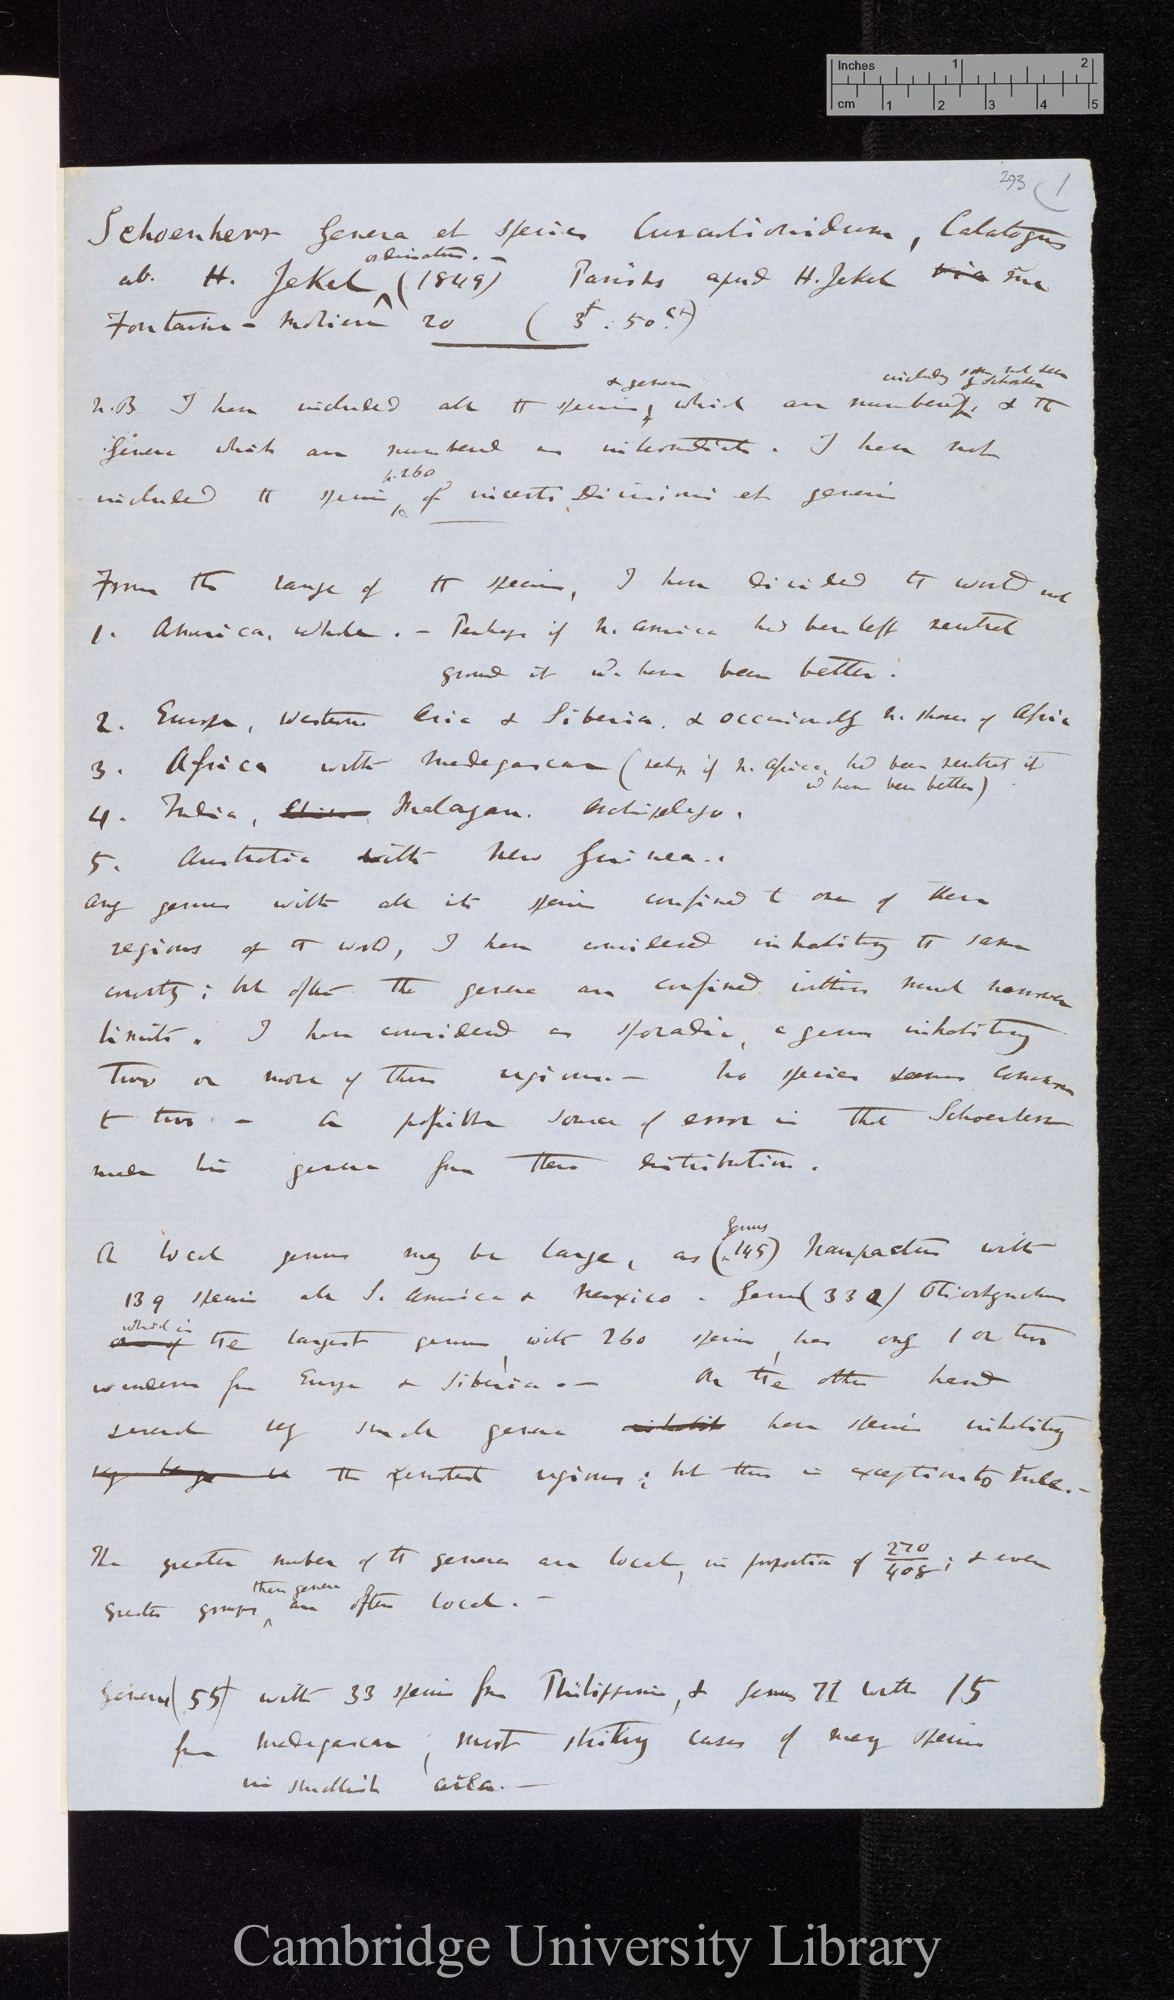 Inches 1 2
cm 1 2 3 4 5
293 (1
Schoenherr Genera et species Curculionidum, Catalogus
ab. H. Jekel ordinatus. — (1849) Parisiis apud H. Jekel rue
Fontaine - Moliere 20 (3f: 50ct)
N.B I have included all the species & genera, which are numbered, including some not seen by Schoenherr & the
Genera which are numbered as intermediate. I have not
included the species p. 260 of incerti Divisionis et generis
From the range of the species, I have divided the world into
1. America, whole. — Perhaps if N. America had been left neutral
ground it wd have been better.
2. Europe, Western Asia & Siberia, & occasionally N. shores of Africa
3. Africa with Madagascar (perhaps if N. Africa, had been neutral it wd have been better)
4. India, Malayan. Archipelago.
5. Australia with New Guinea..
Any genus with all its species confined to one of these
regions of the world, I have considered inhabiting the same
country; but often the genera are confined within much narrower
limits. I have considered as sporadic, a genus inhabiting
two or more of these regions. — No species seems common
to two — A possible source of error is that Schoenherr
made his genera from their distribution.
A local genus may be large, as (Genus 145) Naupactus with
139 species all S. America & Mexico. Genus (332) Otiorhynchus
which is the largest genus, with 260 species, has only 1 or two
wanderers from Europe & Siberia. — On the other hand
several very small genera have species inhabiting
the remotest regions; but this is exception to rule. —
The greater number of the genera are local, in proportion of 270/408; & even
greater groups, than genera are often local. —
Genus (55) with 33 species from Philippines, & Genus 71 with 15
from Madagascar, most striking cases of many species
in smallish area. —
Cambridge University Library